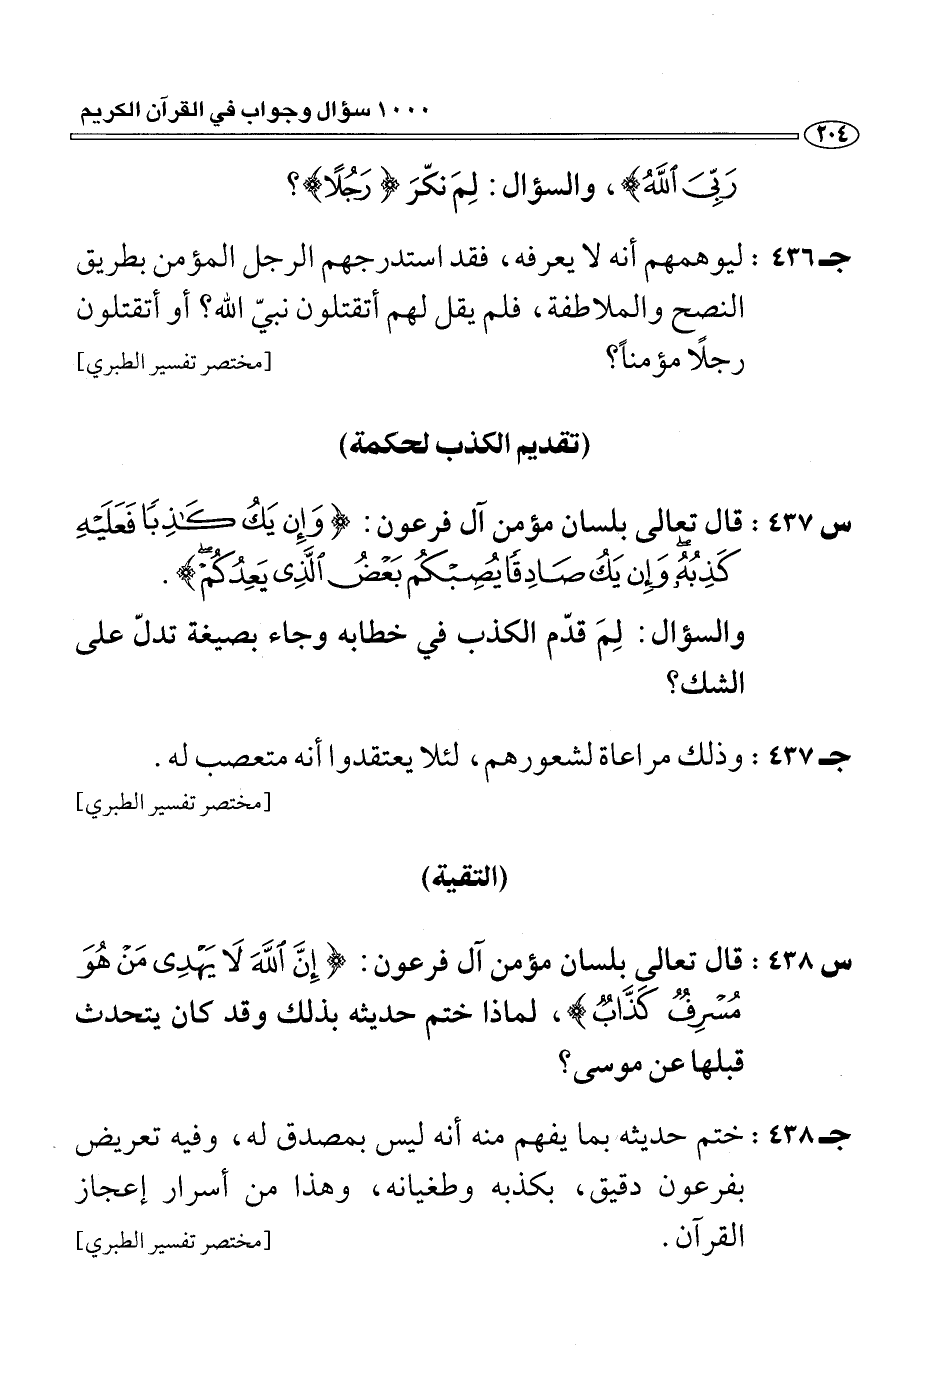 ١٠٠٠ سؤال وجواب في القرآن الكريم
٢٠٤
رَبِّيَ ٱللَّهُ﴾، والسؤال: لِمَ نكّرَ ﴿رَجُلًا﴾؟
جـ ٤٣٦ : ليوهمهم أنه لا يعرفه، فقد استدرجهم الرجل المؤمن بطريق
النصح والملاطفة، فلم يقل لهم أتقتلون نبيّ الله؟ أو أتقتلون
رجلًا مؤمناً؟ [مختصر تفسير الطبري]
(تقديم الكذب لحكمة)
س ٤٣٧ : قال تعالى بلسان مؤمن آل فرعون: ﴿وَإِن يَكُ كَـٰذِبًا فَعَلَيْهِ
كَذِبُهُۥۖ وَإِن يَكُ صَادِقًا يُصِبْكُم بَعْضُ ٱلَّذِى يَعِدُكُمْۖ﴾.
والسؤال: لِمَ قدّم الكذب في خطابه وجاء بصيغة تدلّ على
الشك؟
جـ ٤٣٧ : وذلك مراعاة لشعورهم، لئلا يعتقدوا أنه متعصب له.
[مختصر تفسير الطبري]
(التقية)
س ٤٣٨ : قال تعالى بلسان مؤمن آل فرعون: ﴿إِنَّ ٱللَّهَ لَا يَهْدِى مَنْ هُوَ
مُسْرِفٌ كَذَّابٌ﴾، لماذا ختم حديثه بذلك وقد كان يتحدث
قبلها عن موسى؟
جـ ٤٣٨ : ختم حديثه بما يفهم منه أنه ليس بمصدق له، وفيه تعريض
بفرعون دقيق، بكذبه وطغيانه، وهذا من أسرار إعجاز
القرآن. [مختصر تفسير الطبري]